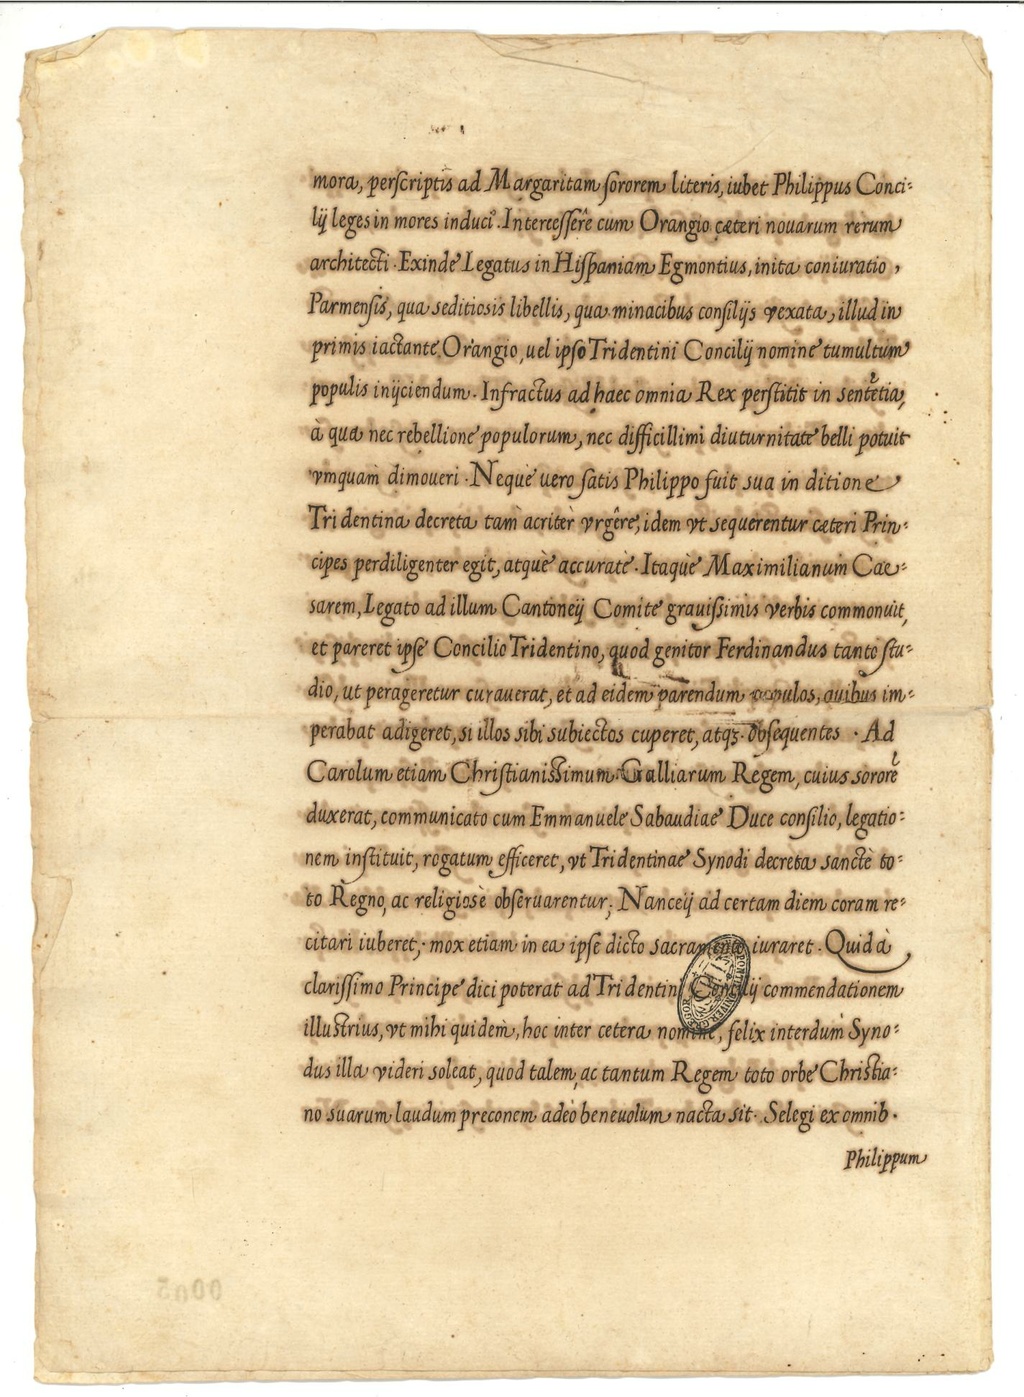 mora, perscriptis ad Margaritam sororem literis, iubet Philippus Conci-
lij leges in mores induci. Intercessêre cum Orangio cæteri nouarum rerum
architecti. Exinde Legatus in Hispaniam Egmontius, inita coniuratio,
Parmensis, qua seditiosis libellis, qua minacibus consilijs vexata, illud in
primis iactante Orangio, uel ipso Tridentini Concilij nomine tumultum
populis inijciendum. Infractus ad haec omnia Rex perstitit in sentẽtia,
à qua nec rebellione populorum, nec difficillimi diuturnitate belli potuit
vmquam dimoueri. Neque uero satis Philippo fuit sua in ditione
Tridentina decreta tam acritèr vrgêre, idem vt sequerentur cæteri Prin-
cipes perdiligenter egit, atquè accuratè. Itaquè Maximilianum Cae-
sarem, Legato ad illum Cantoneij Comite grauissimis verbis commonuit,
et pareret ipse Concilio Tridentino, quod genitor Ferdinandus tanto stu-
dio, ut perageretur curauerat, et ad eidem parendum populos, quibus im-
perabat adigeret, si illos sibi subiectos cuperet, atqz. obsequentes. Ad
Carolum etiam Christianissimum Galliarum Regem, cuius sororẽ
duxerat, communicato cum Emmanuele Sabaudiae Duce consilio, legatio-
nem instituit, rogatum efficeret, vt Tridentinae Synodi decreta sanctè to-
to Regno, ac religiosè obseruarentur; Nanceij ad certam diem coram re-
citari iuberet; mox etiam in ea ipse dicto sacramento iuraret. Quid à
clarissimo Principe dici poterat ad Tridentini Concilij commendationem
illustrius, vt mihi quidem, hoc inter cetera nomine, felix interdum Syno-
dus illa videri soleat, quod talem, ac tantum Regem toto orbe Christia-
no suarum laudum preconem adeò beneuolum nacta sit. Selegi ex omnib.
Philippum